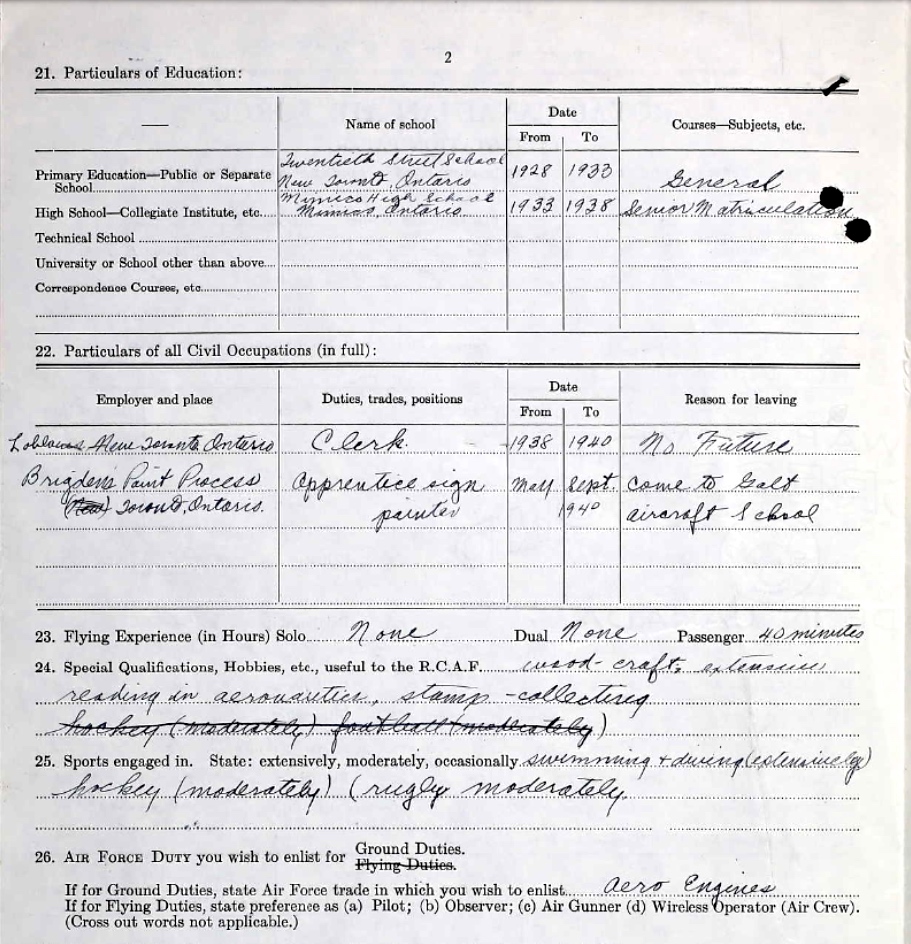 2
21. Particulars of Education:
Name of school
Date
From To
Courses—Subjects, etc.
Twentieth Street School
Primary Education—Public or Separate School New Toronto, Ontario 1928 1933 General
Mimico High School
High School—Collegiate Institute, etc. Mimico, Ontario 1933 1938 Senior Matriculation
Technical School
University or School other than above
Correspondence Courses, etc.
22. Particulars of all Civil Occupations (in full):
Employer and place Duties, trades, positions Date Reason for leaving
From To
Loblaws New Toronto, Ontario Clerk. 1938 1940 No Future
Brigden's Paint Process apprentice sign May Sept. come to Galt
(New) Toronto, Ontario. painter 1940 aircraft School
23. Flying Experience (in Hours) Solo None Dual None Passenger 40 minutes
24. Special Qualifications, Hobbies, etc., useful to the R.C.A.F. wood-craft, extensive
reading in aeronautics, stamp-collecting
hockey (moderately) football (moderately)
25. Sports engaged in. State: extensively, moderately, occasionally swimming + diving (extensively)
hockey (moderately) (rugby moderately
26. AIR FORCE DUTY you wish to enlist for Ground Duties.
Flying Duties.
If for Ground Duties, state Air Force trade in which you wish to enlist aero Engines
If for Flying Duties, state preference as (a) Pilot; (b) Observer; (c) Air Gunner (d) Wireless Operator (Air Crew).
(Cross out words not applicable.)